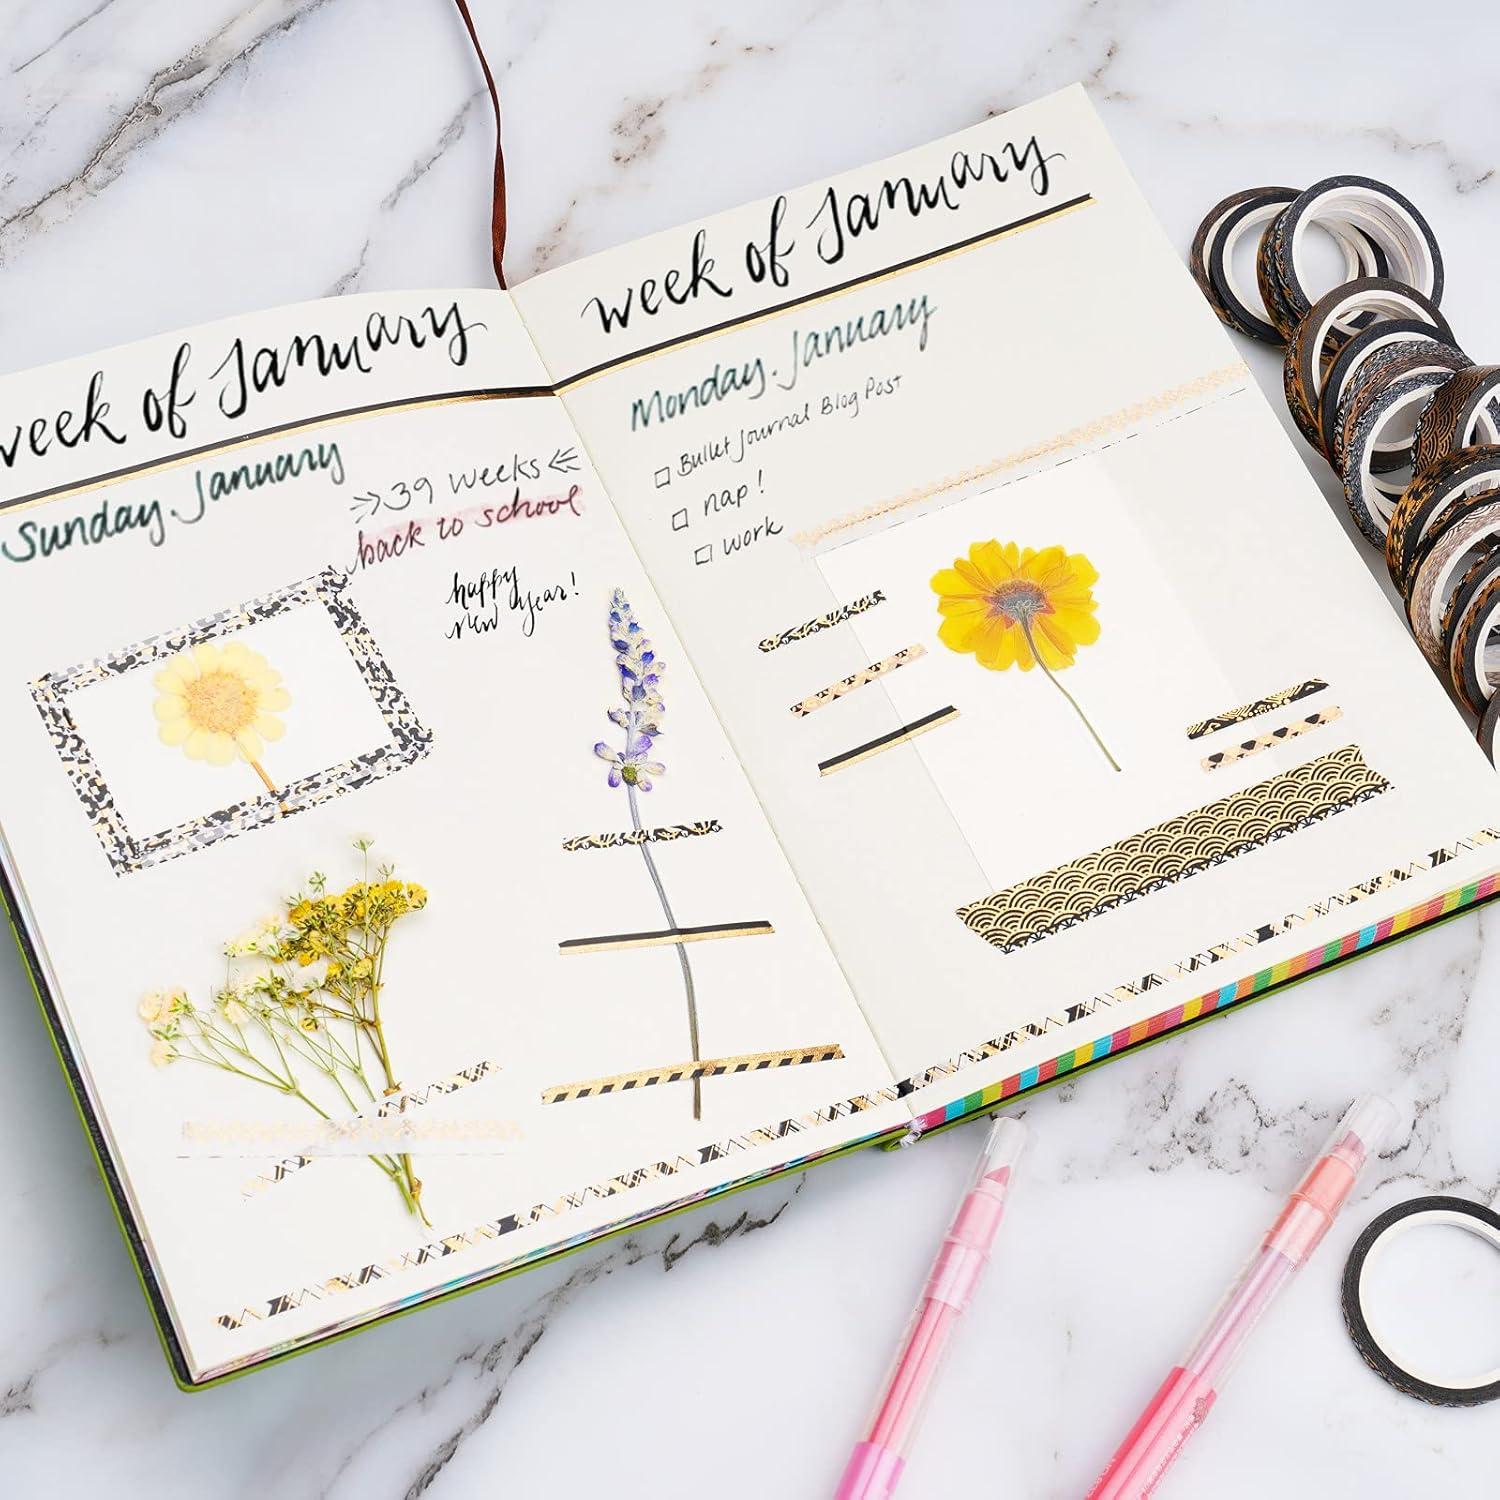 week of January
Sunday. January
39 weeks
back to school
happy
new year!
week of January
Monday. January
Bullet Journal Blog Post
nap!
work